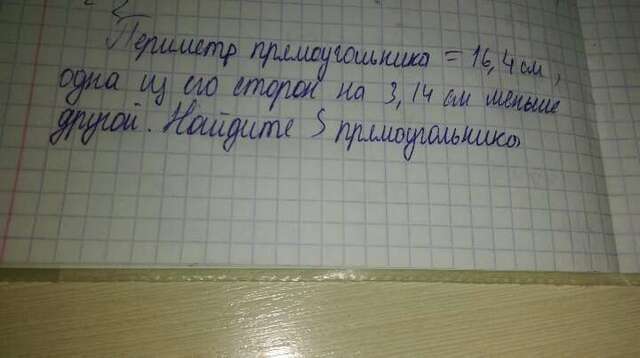 Периметр прямоугольника = 16,4 см,
одна из его сторон на 3,14 см меньше
другой. Найдите S прямоугольника